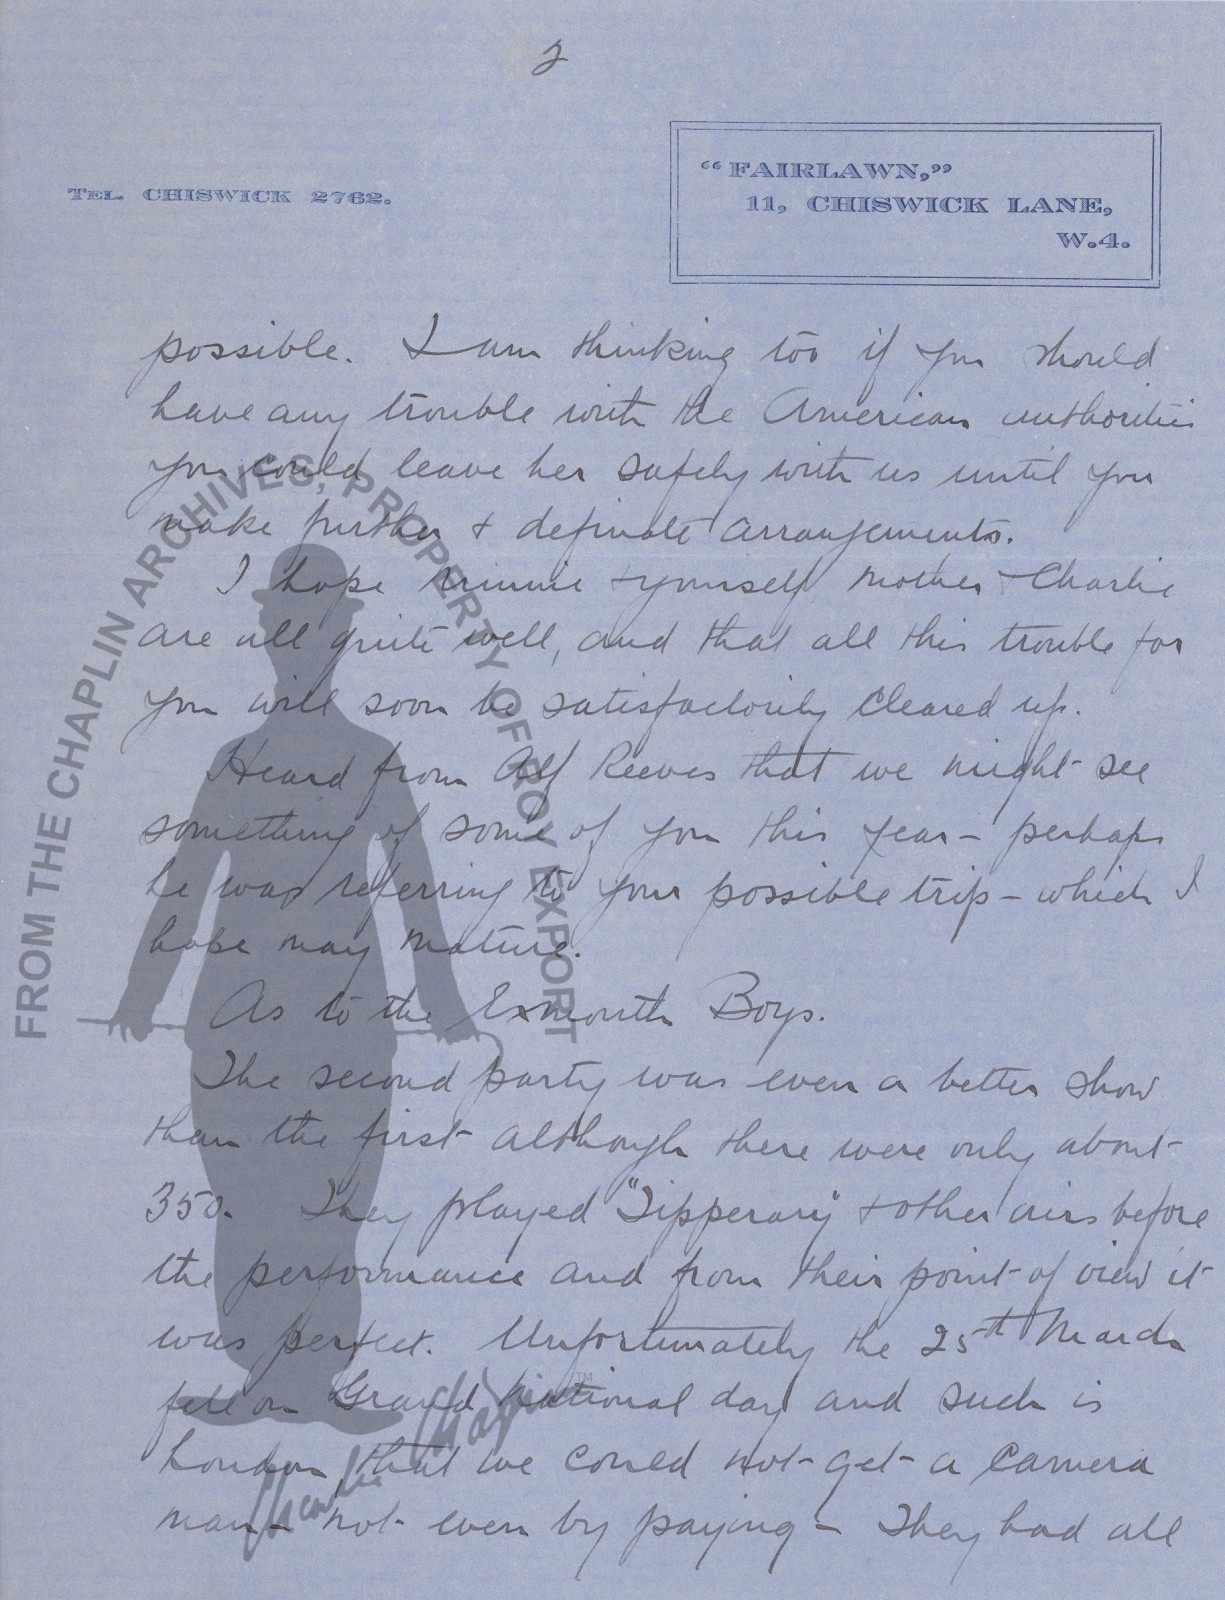 2
TEL. CHISWICK 2762.
“FAIRLAWN,”
11, CHISWICK LANE,
W.4.
possible. I am thinking too if you should
have any trouble with the American authorities
you could leave her safely with us until you
make further & definate arrangements.
I hope Minnie & yourself, Mother & Charlie
are all quite well, and that all this trouble for
you will soon be satisfactorily cleared up.
Heard from Alf Reeves that we might see
something of some of you this year – perhaps
he was referring to your possible trip – which I
hope may mature.
As to the Exmouth Boys.
The second party was even a better show
than the first although there were only about
350. They played "Tipperary" & other airs before
the performance and from their point of view it
was perfect. Unfortunately the 25th March
fell on Grand National day and such is
London that we could not get a camera
man – not even by paying – They had all
FROM THE CHAPLIN ARCHIVES, PROPERTY OF ROY EXPORT
Charlie Chaplin TM